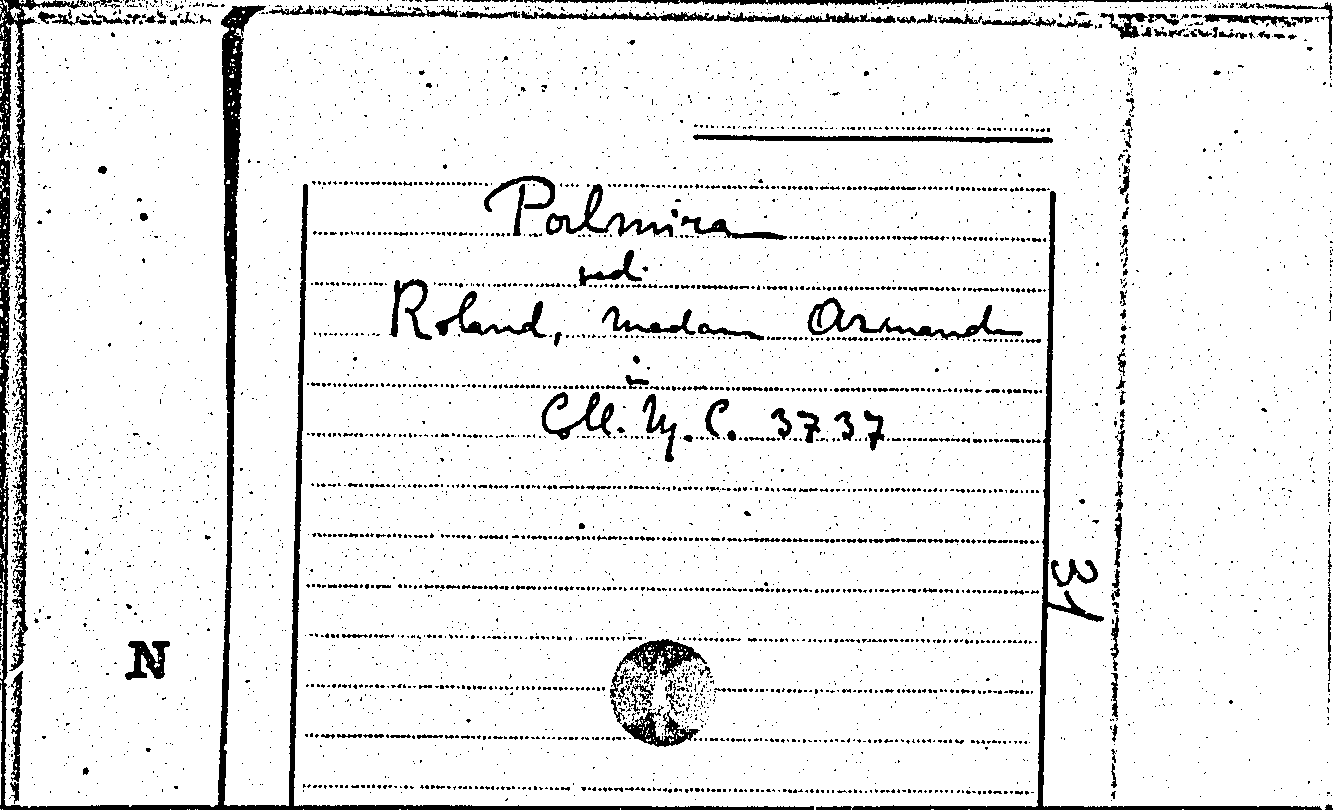 Palmira
vedi
Roland, madam Armand
in
Coll. M. C. 3737
31
N